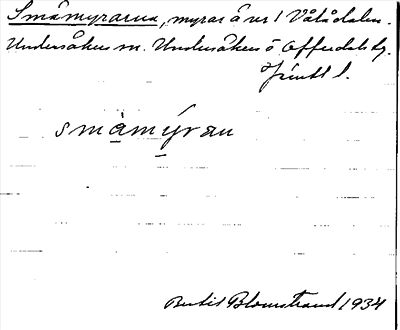 Småmyrarna, myrar å vs 1 Vålådalen.
Undersåkers sn. Undersåkers o Offerdals tg.
Jämtl l.
smȧmýran
Bertil Blomstrand 1934